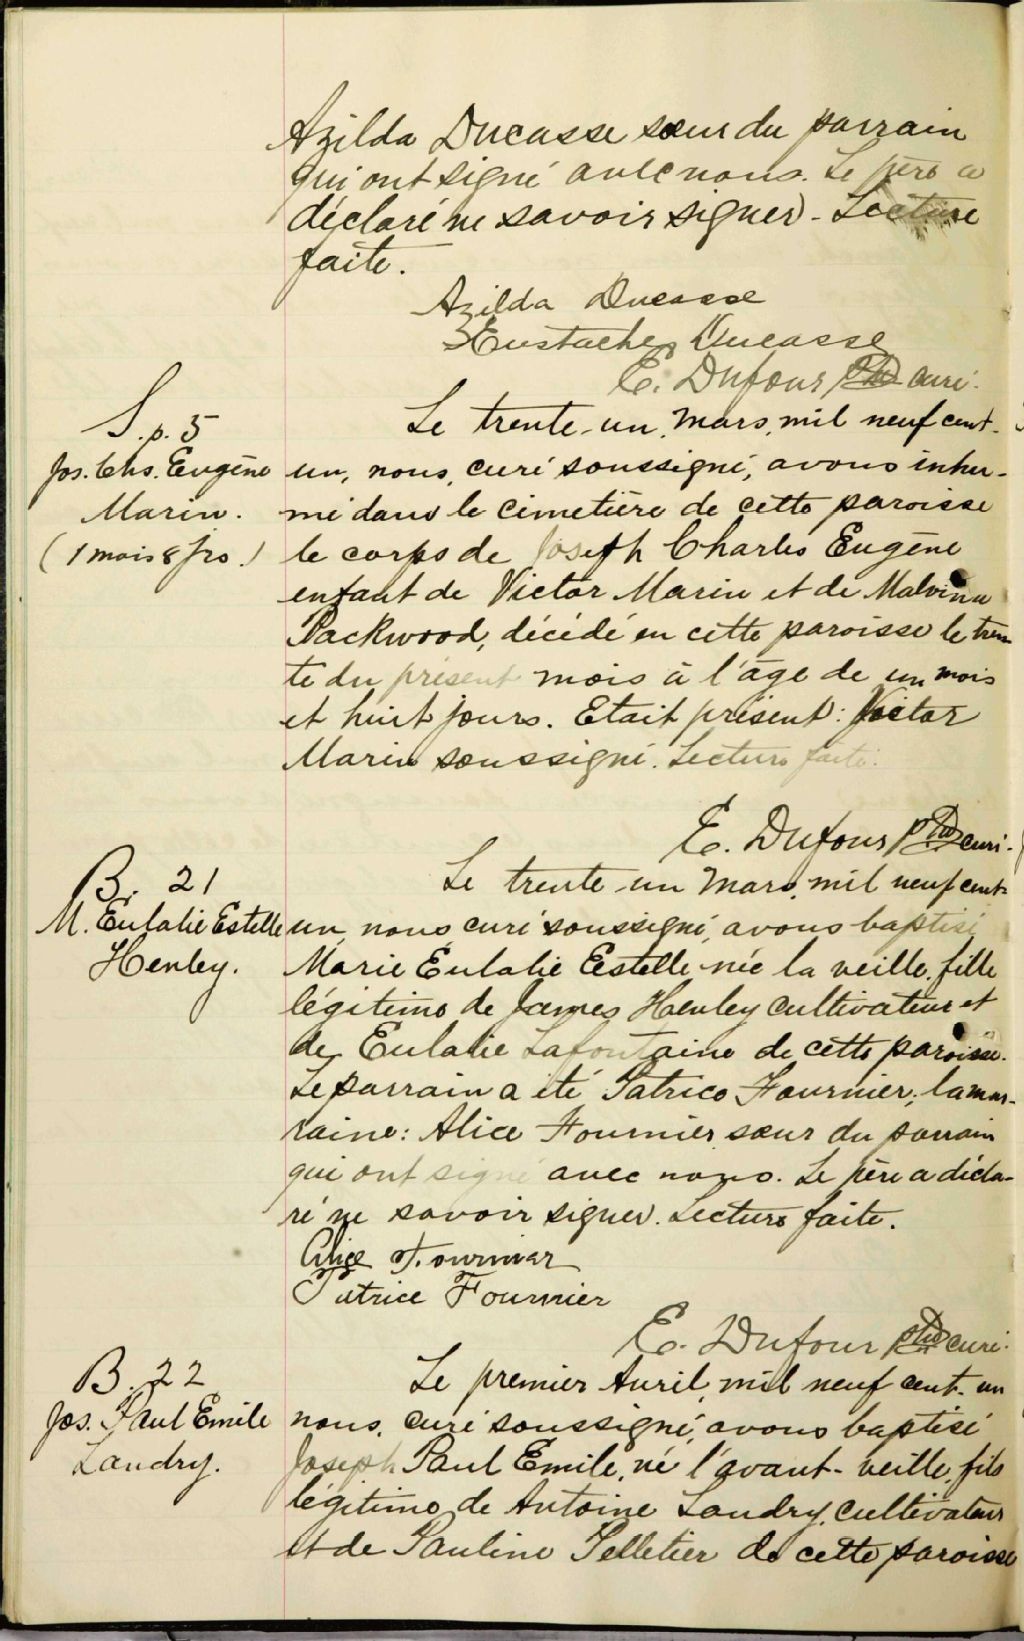 Azilda Ducasse soeur du parrain
qui ont signé avec nous. Le père a
déclaré ne savoir signer - Lecture
faite.
Azilda Ducasse
Eustache Ducasse
E. Dufour Ptre curé.
S.p. 5
Jos. Chs. Eugène
Marin.
(1 mois 8 jrs.)
Le trente-un, Mars, mil neuf cent-
un, nous, curé soussigné, avons inhu-
mé dans le cimetière de cette paroisse
le corps de Joseph Charles Eugène
enfant de Victor Marin et de Malvina
Packwood, décédé en cette paroisse le tren
te du présent mois à l'âge de un mois
et huit jours. Etait présent: Victor
Marin soussigné. Lecture faite.
E. Dufour Ptre curé.
B. 21
M. Eulalie Estelle
Henley.
Le trente-un Mars, mil neuf cent-
un, nous curé soussigné, avons baptisé
Marie Eulalie Estelle née la veille, fille
légitime de James Henley cultivateur et
de Eulalie Lafontaine de cette paroisse.
Le parrain a été Patrice Fournier; la mar-
raine: Alice Fournier soeur du parrain
qui ont signé avec nous. Le père a décla-
ré ne savoir signer. Lecture faite.
Alice Fournier
Patrice Fournier
E. Dufour Ptre curé.
B. 22
Jos. Paul Emile
Landry.
Le premier Avril, mil neuf cent-un
nous, curé soussigné, avons baptisé
Joseph Paul Emile, né l'avant-veille, fils
légitime de Antoine Landry, cultivateur
et de Pauline Pelletier de cette paroisse